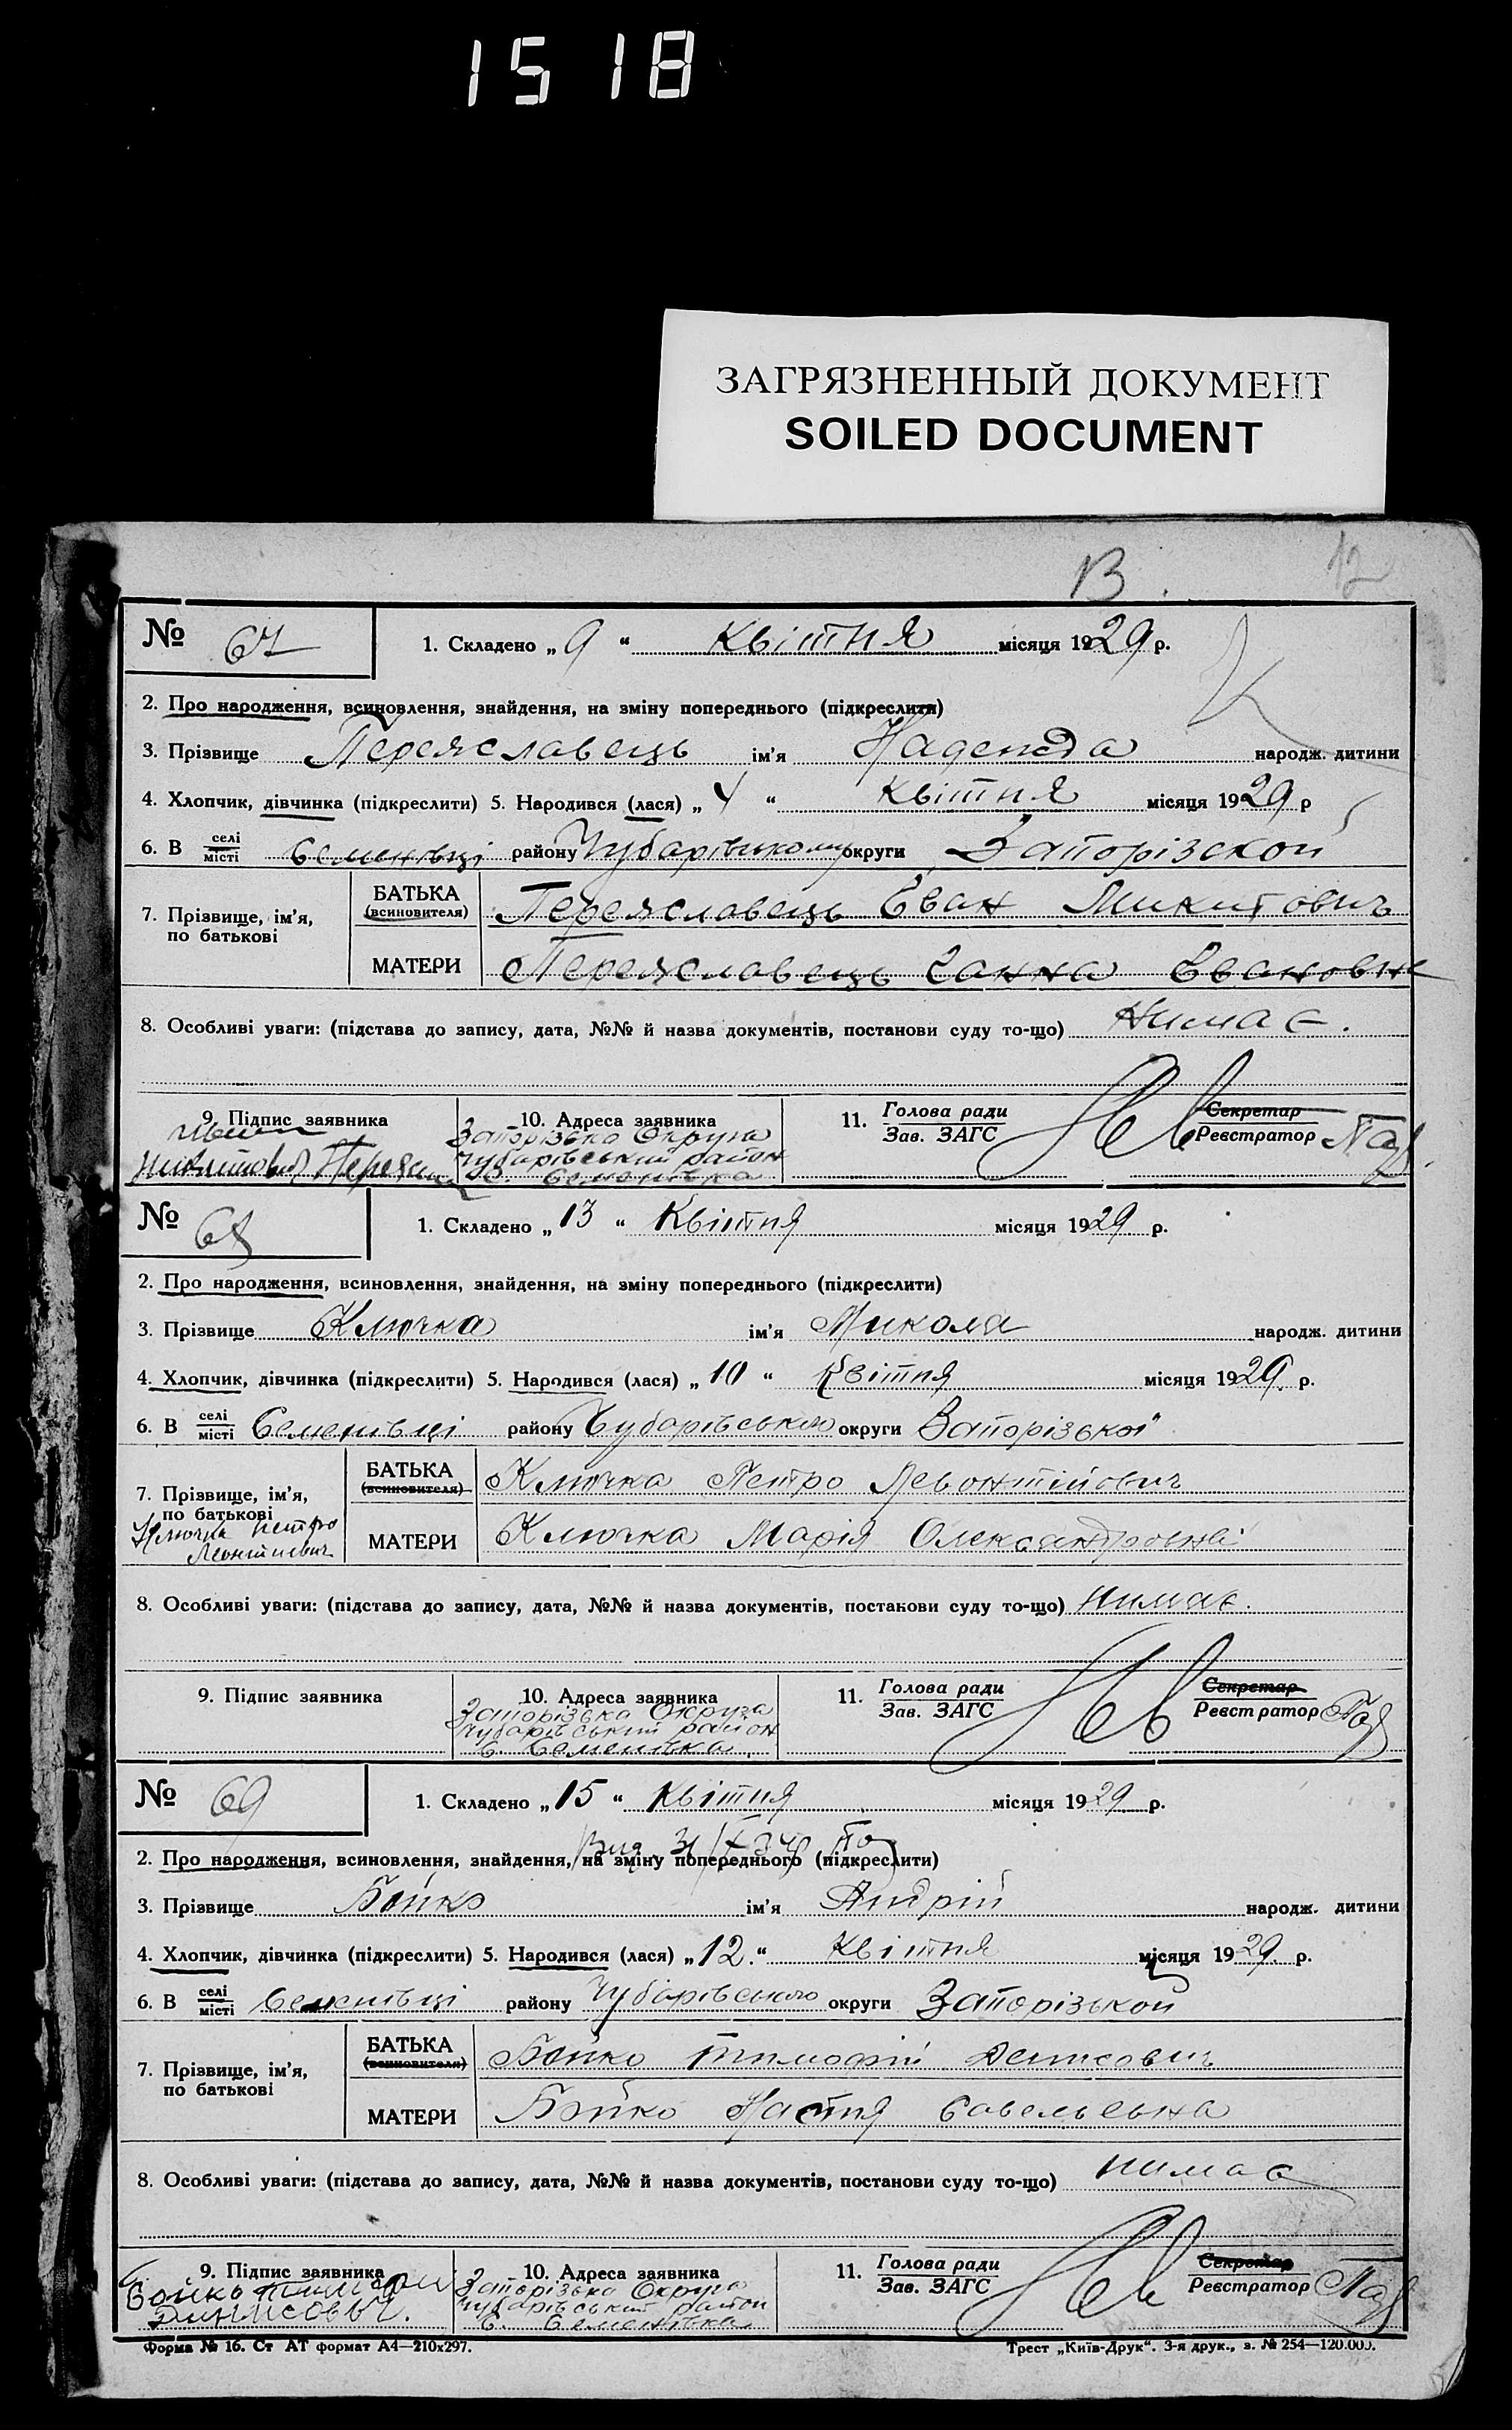 1518
ЗАГРЯЗНЕННЫЙ ДОКУМЕНТ
SOILED DOCUMENT
В. 12
№ 67 1. Складено „ 9 “ Квітня місяця 1929 р.
2. Про народження, всиновлення, знайдення, на зміну попереднього (підкреслити)
3. Прізвище Переяславець ім'я Надежда народж. дитини
4. Хлопчик, дівчинка (підкреслити) 5. Народився (лася) „ 4 “ Квітня місяця 1929 р
6. В селі місті Семенівці району Чубарівському округи Запорізской
7. Прізвище, ім'я, по батькові
БАТЬКА (всиновителя) Переяславець Еван Микитович
МАТЕРИ Переяславець Ганна Евановне
8. Особливі уваги: (підстава до запису, дата, №№ й назва документів, постанови суду то-що) Нимає.
9. Підпис заявника
10. Адреса заявника
Запорізька Округа
Чубарівський район
с. Семенівка
11. Голова ради Зав. ЗАГС Секретар Реєстратор
№ 68 1. Складено „ 13 “ Квітня місяця 1929 р.
2. Про народження, всиновлення, знайдення, на зміну попереднього (підкреслити)
3. Прізвище Ключка ім'я Микола народж. дитини
4. Хлопчик, дівчинка (підкреслити) 5. Народився (лася) „ 10 “ Квітня місяця 1929 р.
6. В селі місті Семенівці району Чубарівського округи Запорізької
7. Прізвище, ім'я, по батькові
Ключка петро
Леонтиевич
БАТЬКА (всиновителя) Ключка Петро Левонтійович
МАТЕРИ Ключка Марія Олександровні
8. Особливі уваги: (підстава до запису, дата, №№ й назва документів, постанови суду то-що) нимає.
9. Підпис заявника
10. Адреса заявника
Запорізька Округа
Чубарівський район
с. Семенівка
11. Голова ради Зав. ЗАГС Секретар Реєстратор
№ 69 1. Складено „ 15 “ Квітня місяця 1929 р.
2. Про народження, всиновлення, знайдення, на зміну попереднього (підкреслити)
3. Прізвище Бойко ім'я Андрій народж. дитини
4. Хлопчик, дівчинка (підкреслити) 5. Народився (лася) „ 12. “ Квітня місяця 1929 р.
6. В селі місті Семенівці району Чубарівського округи Запорізькой
7. Прізвище, ім'я, по батькові
БАТЬКА (всиновителя) Бойко Тимофій Денисович
МАТЕРИ Бойко Настя Савельевна
8. Особливі уваги: (підстава до запису, дата, №№ й назва документів, постанови суду то-що) нимає
9. Підпис заявника
Бойко Тимофій
Динисович.
10. Адреса заявника
Запорізька Округа
Чубарівський район
с. Семенівка
11. Голова ради Зав. ЗАГС Секретар Реєстратор
Форма № 16. Ст АТ формат А4—210х297.
Трест „Київ-Друк“. 3-я друк., з. № 254—120.000.